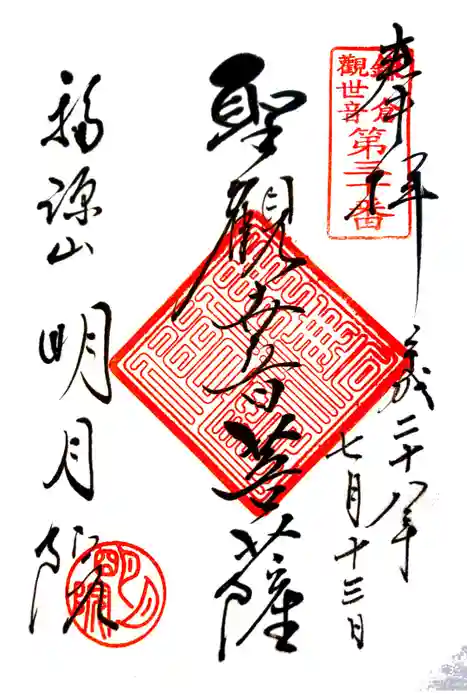 奉拝
鎌倉
觀世音
第三十番
平成二十八年
七月十三日
聖觀世音菩薩
福源山
明月院